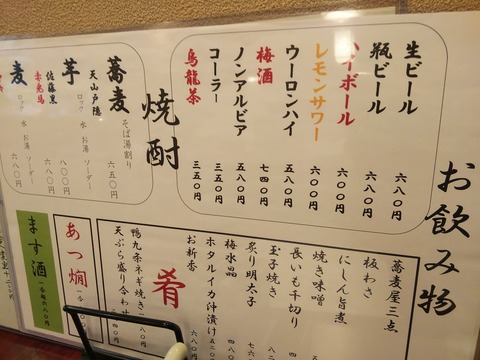 お飲み物
生ビール 六八〇円
瓶ビール 六八〇円
ハイボール 六〇〇円
レモンサワー 六〇〇円
ウーロンハイ 五八〇円
梅酒 七四〇円
ノンアルビア 五八〇円
コーラー 三五〇円
烏龍茶 三五〇円
焼酎
蕎麦 そば湯割り
天山戸隠 六五〇円
芋 ロック 水 お湯 ソーダー
佐藤黒 八〇〇円
赤兎馬 六八〇円
麦 ロック 水 お湯 ソーダー
六八〇円
蕎麦屋三点
板わさ
にしん旨煮
焼き味噌
長いも千切り
玉子焼き
炙り明太子
梅水晶
ホタルイカ沖漬け
お新香
肴
鴨九条ネギ焼き
天ぷら盛り合わせ
あつ燗
ます酒 一合